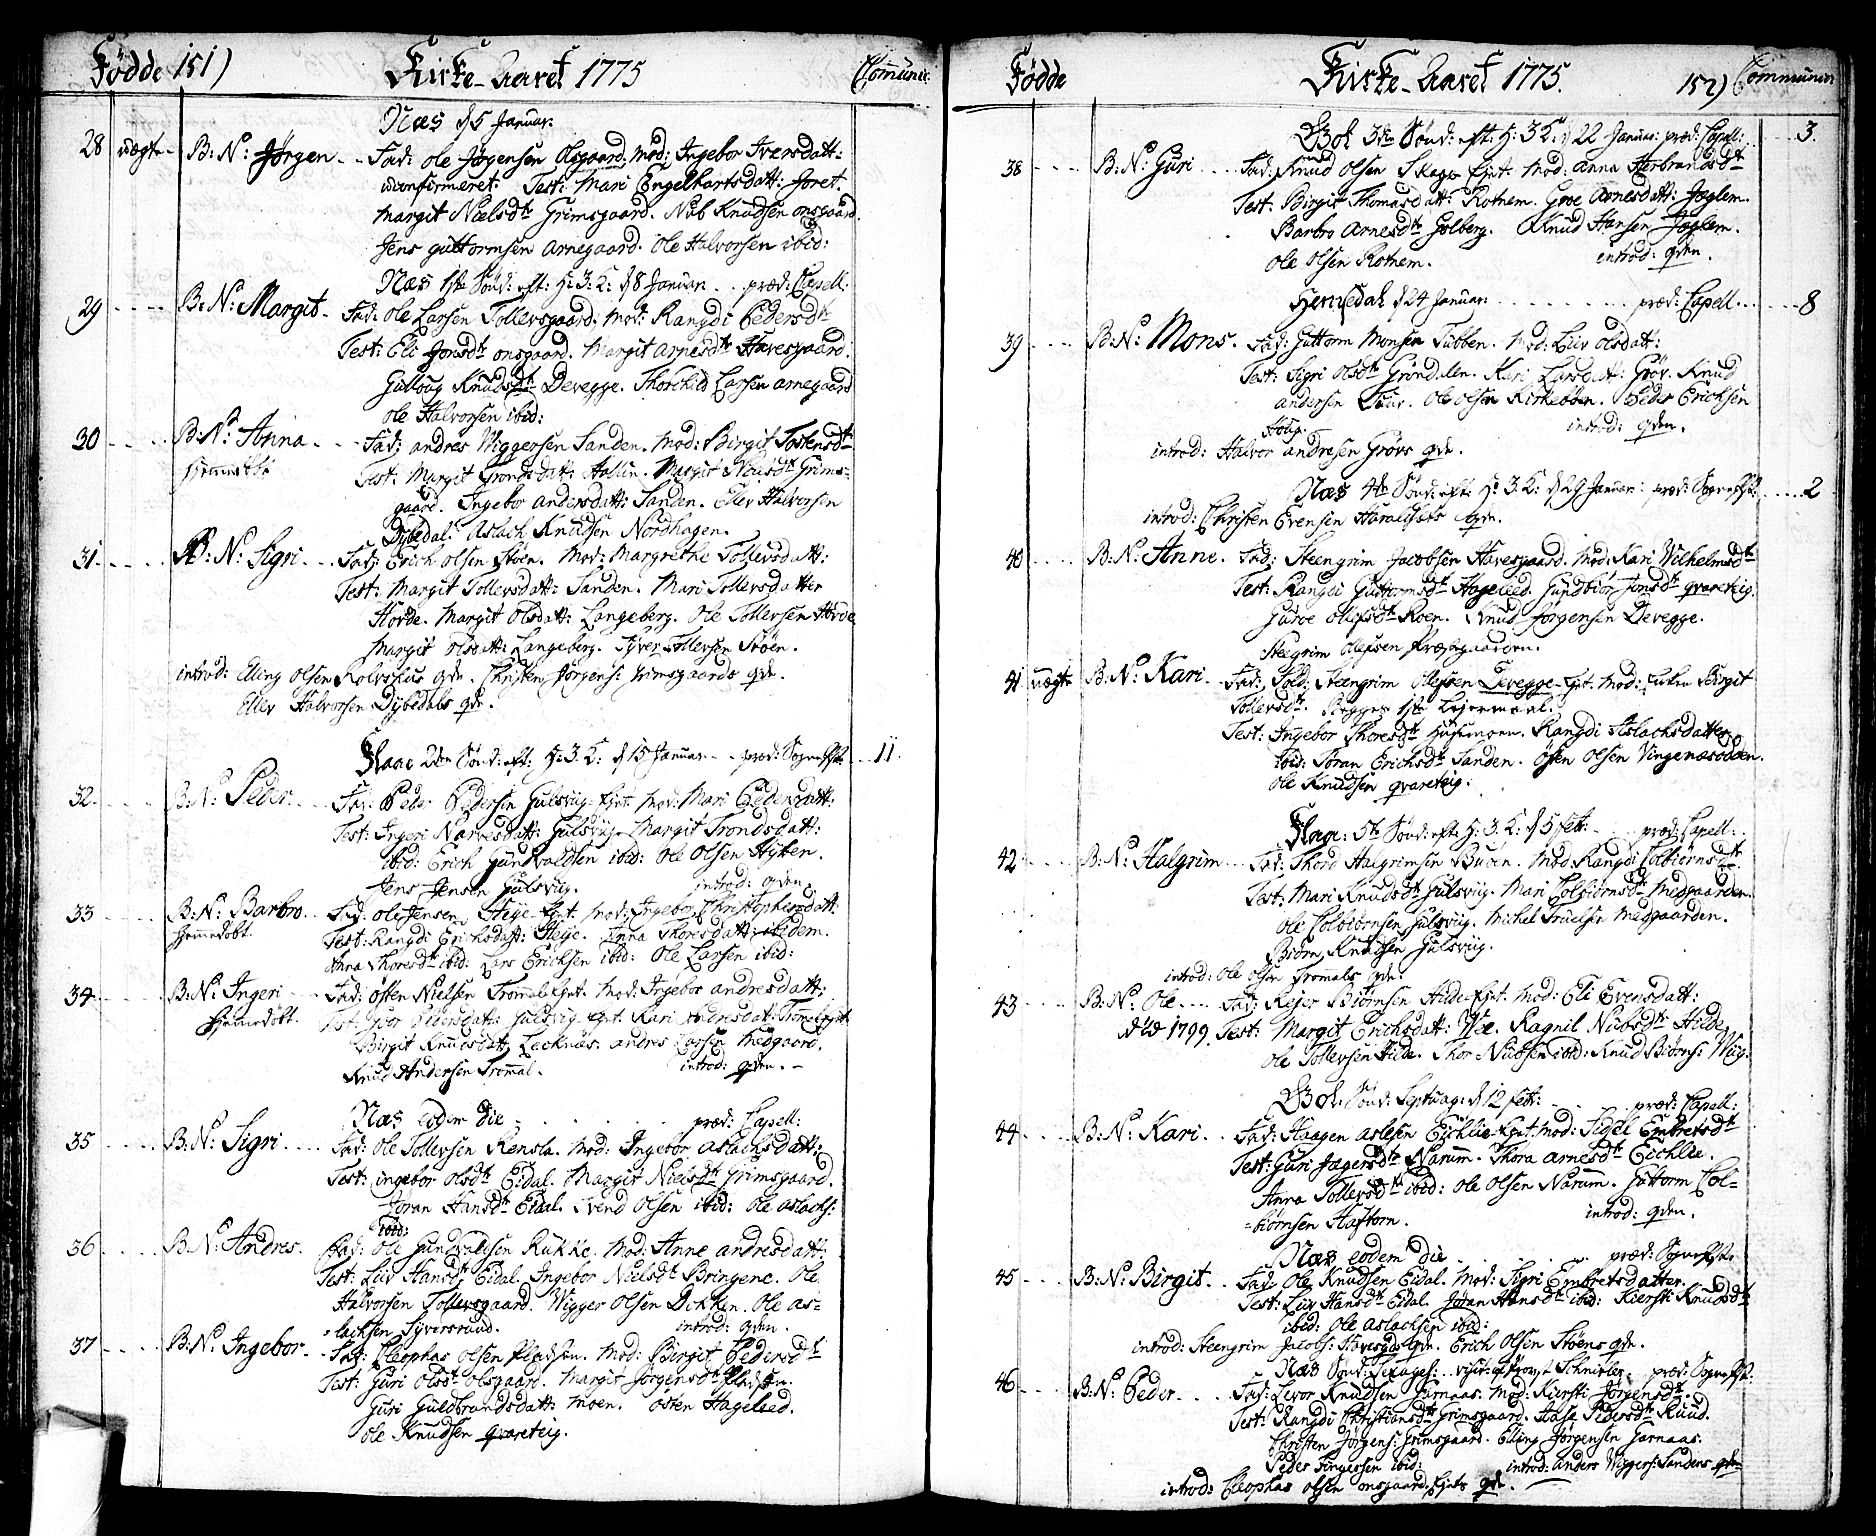 Fødde 151) Kirke-Aaret 1775 Communic.
Næs d 5 Januar.
28 uægte B: N: Jørgen Fad: Ole Jørgensen Olsgaard, mod: Ingebor Iversdatt:
uconfirmeret. Test: Mari Engelbartsdatt: Joret.
Margit Nielsdtr Grimsgaard. Nub Knudsen Onsgaard.
Jens Guttormsen Arnegaard. Ole Halvorsen ibid:
Næs 1ste Sønd: eft: H: 3: K: d 8 Januar. præd: Capell:
29 B: N: Margit Fad: Ole Larsen Tollevsgaard, mod: Rangdi Pedersdtr
Test: Eli Jonsdtr Onsgaard. Margit Arnesdtr Havesgaard.
Gulloug Knudsdtr Devegge. Thorchild Larsen Arnegaard
Ole Halvorsen ibid:
30 B: N: Anna Fad: Andres Viggersen Sanden. Mod: Birgit Tostensdtr
Hjemmedøbt Test: Margit Trondsdatt: Hallin. Margit Nielsdtr Grims=
gaard. Ingebor Andersdatt: Sanden. Ellev Halvorsen
Dybedal. Aslach Knudsen Nordhagen.
31 B: N: Sigri Fad: Erich Olsen Støen. Mod: Margrethe Tollevsdatt:
Test: Margit Tollevsdatt: Sanden. Mari Tollevsdatter
Horde. Margit Olsdatt: Langeberg. Ole Tollevsen Horde
Margit Olsdatt: Langeberg. Syver Tollevsen Støen.
introd: Elling Olsen Rolvshus qvn. Christen Jørgens: Grimsgaards qvn.
Ellev Halvorsen Dybedals qvn.
Flaae 2den Sønd: eft: H: 3: K: d 15 Januar præd: Sogneprst 11.
32 B: N: Peder Fad: Peder Pedersen Gulsviig Ejet. Mod: Mari Pedersdatt:
Test: Ingeri Narvesdatt: Gulsviig. Margit Trondsdatt:
ibid: Erich Gundvaldsen ibid: Ole Olsen Hycken.
Jens Jensen Gulsviig. introd: qvden.
33 B: N: Barbro Fad: Ole Jensen Heje Ejet. Mod: Ingebor Christophersdatt:
Hjemmedøbt. Test: Rangdi Erichsdatt: Heje. Anna Thoresdatt: ibidem.
Anna Thoresdtr ibid: Lars Erichsen ibid: Ole Larsen ibid:
34 B: N: Ingeri Fad: Østen Nielsen Trommald Ejet. Mod: Ingebor Andresdatt:
Hjemmedøbt. Test: Pedersdatt: Gulsvig Ejet. Kari Andresdatt: Trommald Ejet.
Birgit Knudsdatt: Lecknæs. Andres Larsen Medgaard.
Knud Andersen Trommal. introd: qvden.
Næs eodem die præd: Capell:
35 B: N: Sigri Fad: Ole Tollevsen Rensla. Mod: Ingebor Aslachsdatt:
Test: Ingebor Olsdtr Eidal. Margit Nielsdtr Grimsgaard.
Jøran Hansdtr Eidal. Svend Olsen ibid: Ole Aslachs:
ibid:
36 B: N: Andres. Fad: Ole Gundvaldsen Rukke. Mod: Anne Andresdatt:
Test: Liiv Hansdtr Eidal. Ingebor Nielsdtr Bringene. Ole
Halvorsen Tollevsgaard. Vigger Olsen Dokken. Ole As=
=lachsen Syversrud. introd: qvden.
37 B: N: Ingebor Fad: Cleophas Olsen Pladsen. Mod: Birgit Pedersdtr
Test: Guri Olsdtr Olsgaard. Margit Jørgensdtr Pladsen.
Guri Guldbrandsdatt: Moen. Østen Hageleed.
Ole Knudsen Qvareteig.
Fødde Kirke-Aaret 1775. 152) Communic:
Gol 3die Sønd: eft: H: 3 K: d 22 Januar: præd: Capell: 3.
38 B: N: Guri Fad: Knud Olsen Skaga Ejet. Mod: Anna Herbrandsdtr
Test: Birgit Thomasdatt: Rotnem. Groe Arnesdatt: Jøglem.
Barbro Arnesdtr Golberg. Knud Hansen Jøglem.
Ole Olsen Rotnem. introd: qvden.
Hemsedal d 24 Januar: præd: Capell. 8
39 B: N: Mons. Fad: Guttorm Monsen Tubben. Mod: Liiv Olsdatt:
Test: Sigri Olsdtr Grøndalen. Kari Larsdatt: Grøv. Knud
Andersen Ole Olsen Kirkebøen. Peder Erichsen
introd: qvden.
introd: Halvor Andresen Grøvs qvn.
Næs 4de Sønd: eft: H: 3: K: d 29 Januar: præd: Sogneprst 2
introd: Christen Evensen Haraldsets qvn.
40 B: N: Anne. Fad: Steengrim Jacobsen Havesgaard. Mod: Kari Vilhelmsdtr
Test: Rangdi Guttormsdtr Hageleed. Gundbiør Jonsdtr Qvareteig.
Guroe Olefsdtr Roen. Knud Jørgensen Devegge.
Steegrim Olefsen Præstgaarden.
41 uægte B: N: Kari Fad: Sold: Steengrim Olefsen Devegge Ejet. Mod: Enken Birgit
Tollevsdtr. Begges 1ste Lejermaal.
Test: Ingebor Thoresdtr Rangdi Aslachsdatter
ibid: Jøran Erichsdtr Sanden. Østen Olsen Vingenæsødden.
Ole Knudsen Qvareteig:
Flaae: 5te Sønd: eft: H: 3. K: d 5 feb: præd: Capell:
42 B: N: Halgrim Fad: Thord Halgrimsen Buøen. Mod: Rangdi Colbiørnsdtr
Test: Mari Knudsdtr Gulsviig. Mari Colbiørnsdtr Medgaarden.
Ole Colbiørnsen Gulsviig. Michel Truelsen Medgaarden.
Biørn Knudsen Gulsviig.
introd: Ole Olsen Trommals qvn.
43 B: N: Ole Fad: Rejer Biørnsen Hilde Ejet. Mod: Eli Evensdatt:
død 1799. Test: Margit Erichsdatt: Vee. Ragnil Nubsdtr Hilde.
Ole Tollevsen Hilde. Thor Nubsen ibid: Knud Biørns: Viig.
Gol: Sønd: Septuag: d 12 febr: præd: Capell:
44 B: N: Kari Fad: Haagen Aslesen Eichlie Ejet. Mod: Sidsel Embretsdtr
Test: Guri Jægersdtr Narum. Thora Arnesdtr Eichlie.
Anna Tollevsdtr ibid: Ole Olsen Narum. Guttorm Col=
=biørnsen Haftorn. introd: qvden.
Næs eodem die præd: Sogneprst
45 B: N: Birgit Fad: Ole Knudsen Eidal. Mod: Sigri Embretsdatter.
Test: Liiv Hansdtr Eidal. Jøran Hansdtr ibid: Kiersti Knudsdtr
ibid: Ole Aslachsen ibid:
introd: Steengrim Jacobs: Havesgds qvn. Erich Olsen Støens qvn.
Næs Sønd: Sexages: visit: af Provst Schnitler præd: Sogneprst:
46 B: N: Peder Fad: Levor Knudsen Garnaas. Mod: Kiersti Jørgensdtr.
Test: Rangdi Christiansdtr Grimsgaard. Aase Pedersdtr Ruud.
Christen Jørgens: Grimsgaard. Elling Jørgensen Garnaas.
Peder Fingersen ibid: introd: Anders Viggers: Sandens qvn
introd: Cleophas Olsen Onsgaard Ejets qvn.